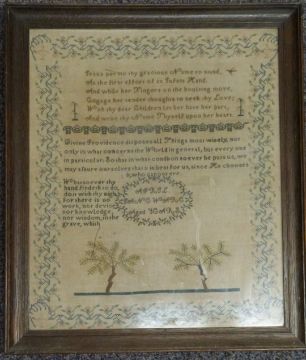 Jesus permit thy gracious Name to stand,
As the first efforts of an Infants Hand.
And while her Fingers on the canvas move,
Engage her tender thoughts to seek thy Love;
With thy dear Children let her have her part,
And write thy Name Thyself upon her heart.
Divine Providence disposes all Things most wisely, not
only in what concerns the World in general, but every one
in particular. So that in what condition soever he puts us, we
may assure ourselves that it is best for us, since He chooses
Whatsoever thy
hand findeth to do,
do it with thy might
for there is no
work, nor device,
nor knowledge,
nor wisdom, in the
grave, which
APRIL
Aged YEARS